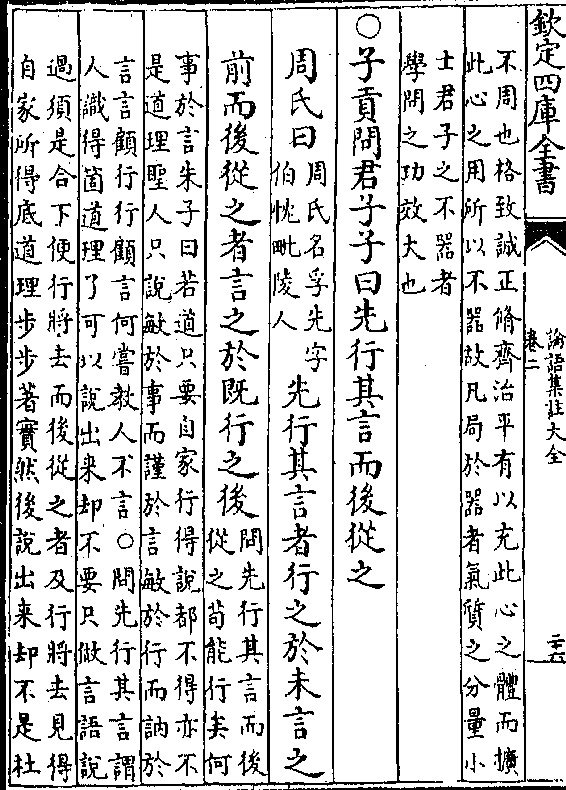 欽定四庫全書
論語集註大全
卷二
二十六
不周也格致誠正脩齊治平有以充此心之體而擴
此心之用所以不器故凡局於器者氣質之分量小
士君子之不器者
學問之功效大也
○子貢問君子子曰先行其言而後從之
周氏曰
周氏名孚先字
伯忱毗陵人
先行其言者行之於未言之
前而後從之者言之於既行之後
問先行其言而後
從之苟能行矣何
事於言朱子曰若道只要自家行得說都不得亦不
是道理聖人只說敏於事而謹於言敏於行而訥於
言言顧行行顧言何嘗教人不言○問先行其言謂
人識得箇道理了可以說出来却不要只做言語說
過須是合下便行將去而後從之者及行將去見得
自家所得底道理步步著實然後說出来却不是杜